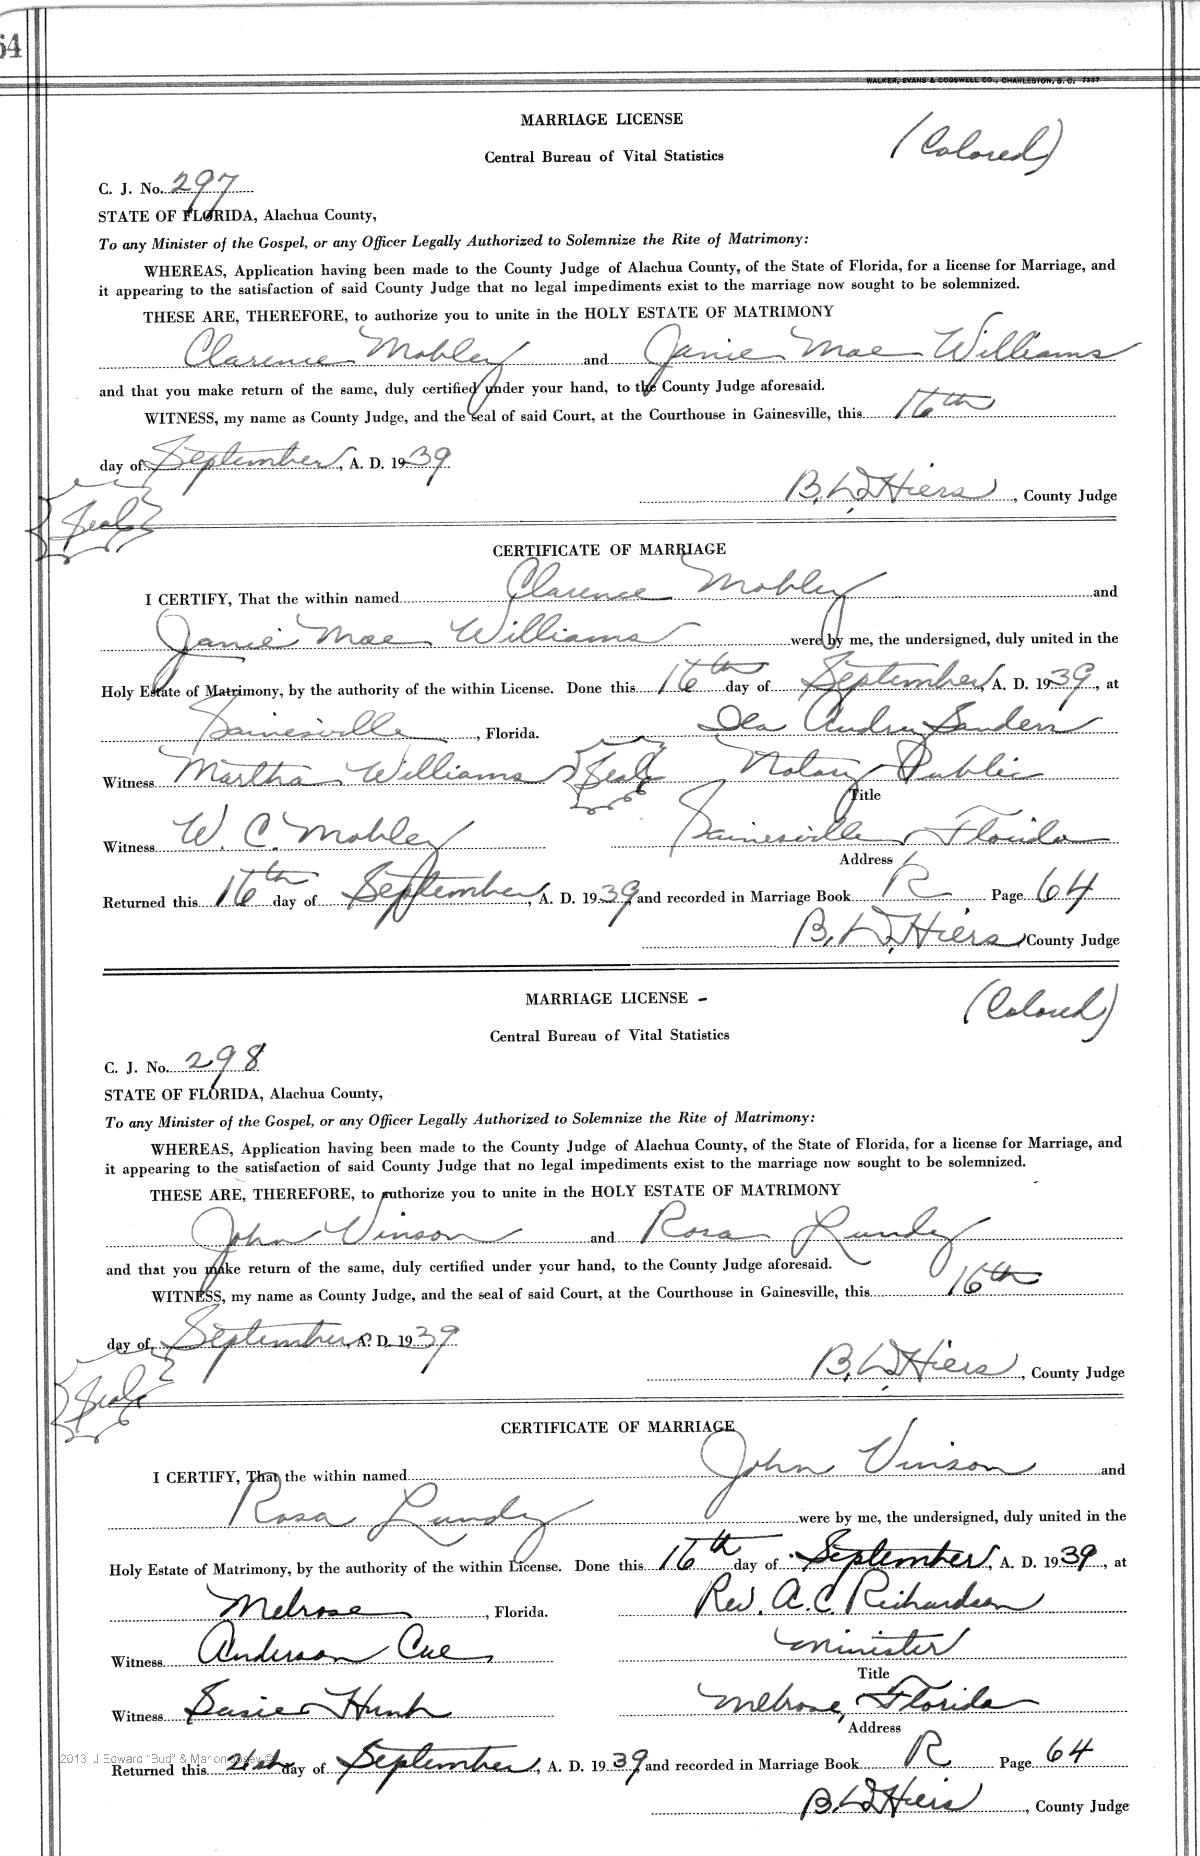 64
WALKER, EVANS & COGSWELL CO., CHARLESTON, S. C. 7337
MARRIAGE LICENSE
(Colored)
Central Bureau of Vital Statistics
C. J. No. 297
STATE OF FLORIDA, Alachua County,
To any Minister of the Gospel, or any Officer Legally Authorized to Solemnize the Rite of Matrimony:
WHEREAS, Application having been made to the County Judge of Alachua County, of the State of Florida, for a license for Marriage, and
it appearing to the satisfaction of said County Judge that no legal impediments exist to the marriage now sought to be solemnized.
THESE ARE, THEREFORE, to authorize you to unite in the HOLY ESTATE OF MATRIMONY
Clarence Mobley and Janie Mae Williams
and that you make return of the same, duly certified under your hand, to the County Judge aforesaid.
WITNESS, my name as County Judge, and the seal of said Court, at the Courthouse in Gainesville, this 16th
day of September, A. D. 1939
B. L. Hiers, County Judge
Seal
CERTIFICATE OF MARRIAGE
I CERTIFY, That the within named Clarence Mobley and
Janie Mae Williams were by me, the undersigned, duly united in the
Holy Estate of Matrimony, by the authority of the within License. Done this 16th day of September, A. D. 1939, at
Gainesville, Florida. Ila Sanders
Witness Martha Williams Seal Notary Public
Title
Witness W. C. Mobley Gainesville Florida
Address
Returned this 16th day of September, A. D. 1939 and recorded in Marriage Book R Page 64
B. L. Hiers County Judge
MARRIAGE LICENSE -
(Colored)
Central Bureau of Vital Statistics
C. J. No. 298
STATE OF FLORIDA, Alachua County,
To any Minister of the Gospel, or any Officer Legally Authorized to Solemnize the Rite of Matrimony:
WHEREAS, Application having been made to the County Judge of Alachua County, of the State of Florida, for a license for Marriage, and
it appearing to the satisfaction of said County Judge that no legal impediments exist to the marriage now sought to be solemnized.
THESE ARE, THEREFORE, to authorize you to unite in the HOLY ESTATE OF MATRIMONY
John Vinson and Rosa Lundy
and that you make return of the same, duly certified under your hand, to the County Judge aforesaid.
WITNESS, my name as County Judge, and the seal of said Court, at the Courthouse in Gainesville, this 16th
day of September, A. D. 1939
B. L. Hiers, County Judge
Seal
CERTIFICATE OF MARRIAGE
I CERTIFY, That the within named John Vinson and
Rosa Lundy were by me, the undersigned, duly united in the
Holy Estate of Matrimony, by the authority of the within License. Done this 16th day of September, A. D. 1939, at
Melrose, Florida. Rev. A. C. Richardson
Witness Anderson Cue Minister
Title
Witness Susie Melrose, Florida
Address
2013 J Edward "Bud" &
Returned this day of September, A. D. 1939 and recorded in Marriage Book R Page 64
B. L. Hiers, County Judge